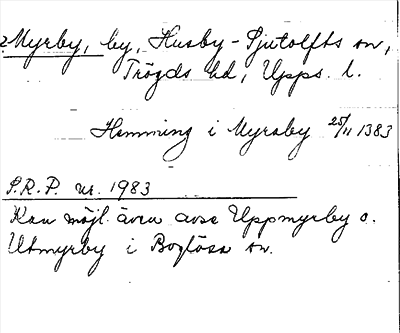 2 Myrby, by, Husby-Sjutolfts sn,
Trögds hd, Upps. l.
Hemming i Myraby 25/11 1383
S.R.P. nr. 1983
Kan möjl. även avse Uppmyrby o.
Utmyrby i Boglösa sn.